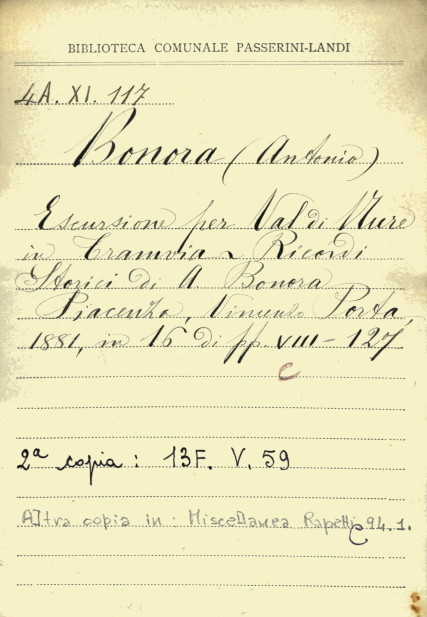 BIBLIOTECA COMUNALE PASSERINI-LANDI
4A. XI. 117
Bonora (Antonio)
Escursione per Val di Nure
in Tramvia ~ Ricordi
Storici di A. Bonora
Piacenza, Vincenzo Porta,
1881, in 16 di pp VIII - 127
C
2ª copia : 13F. V. 59
Altra copia in : Miscellanea Rapetti 94. 1.